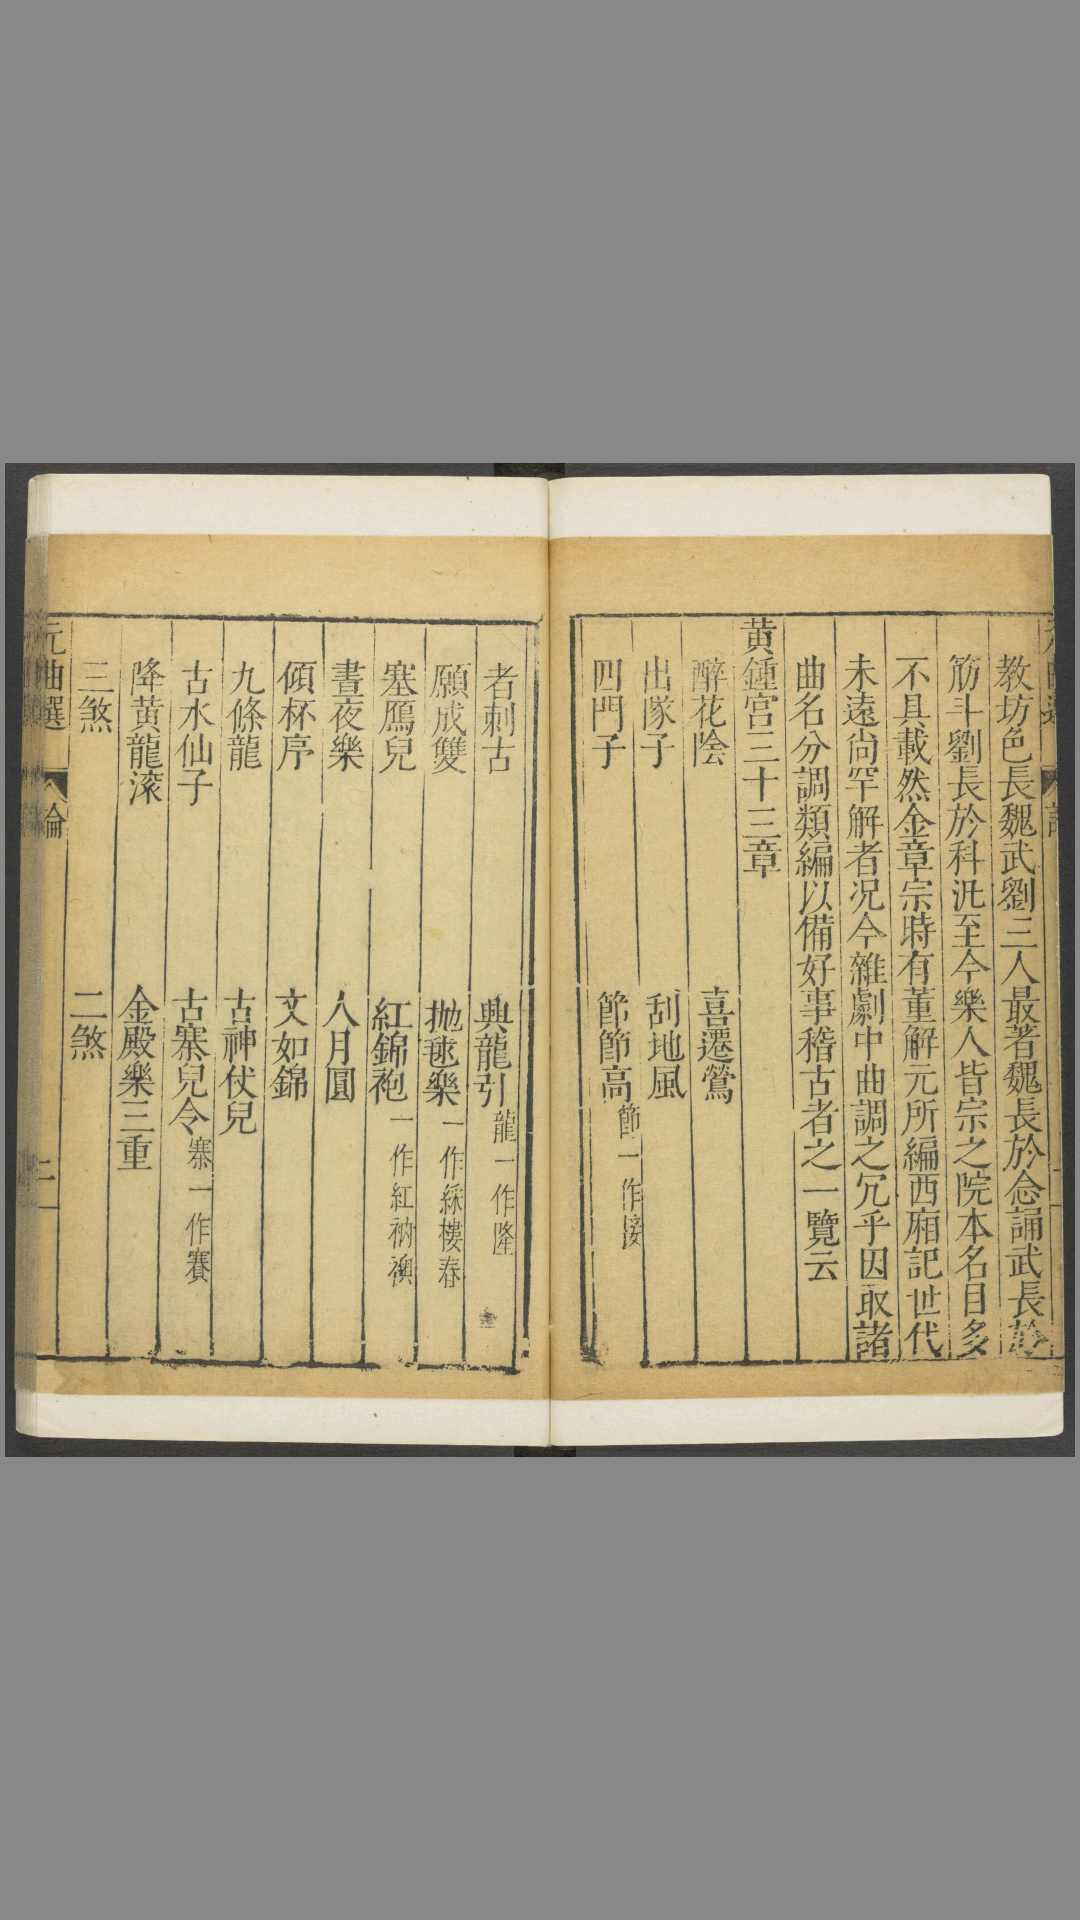 教坊色長魏武劉三人最著魏長於念誦武長於
筋斗劉長於科汎至今樂人皆宗之院本名目多
不具載然金章宗時有董解元所編西廂記世代
未遠尚罕解者况今雜劇中曲調之冗乎因取諸
曲名分調類編以備好事稽古者之一覽云
黄鍾宫三十三章
醉花陰 喜遷鶯
出隊子 刮地風
四門子 節節高節一作接
者刺古 興龍引龍一作隆
願成雙 抛毬樂一作綵樓春
塞鴈兒 紅錦袍一作紅衲襖
晝夜樂 人月圓
傾杯序 文如錦
九條龍 古神仗兒
古水仙子 古寨兒令寨一作賽
降黄龍滾 金殿樂三重
三煞 二煞
元曲選 論